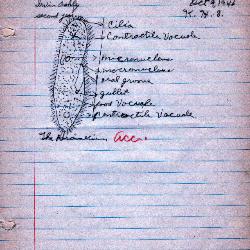 second
Oct 9 1946
Cilia
Contractile Vacuole
micronucleus
macronucleus
oral groove
gullet
food Vacuole
contractile Vacuole
The Paramecium acc.